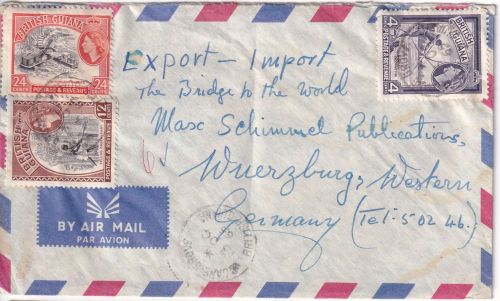 BRITISH GUIANA
24 CENTS POSTAGE & REVENUE 24 CENTS
BRITISH GUIANA
12 CENTS POSTAGE & REVENUE
BRITISH GUIANA
4 CENTS POSTAGE & REVENUE 4
Export - Import
The Bridge to the World
Max Schimmel Publications,
Wuerzburg, Western
Germany (Tel: 5 02 46.)
BY AIR MAIL
PAR AVION